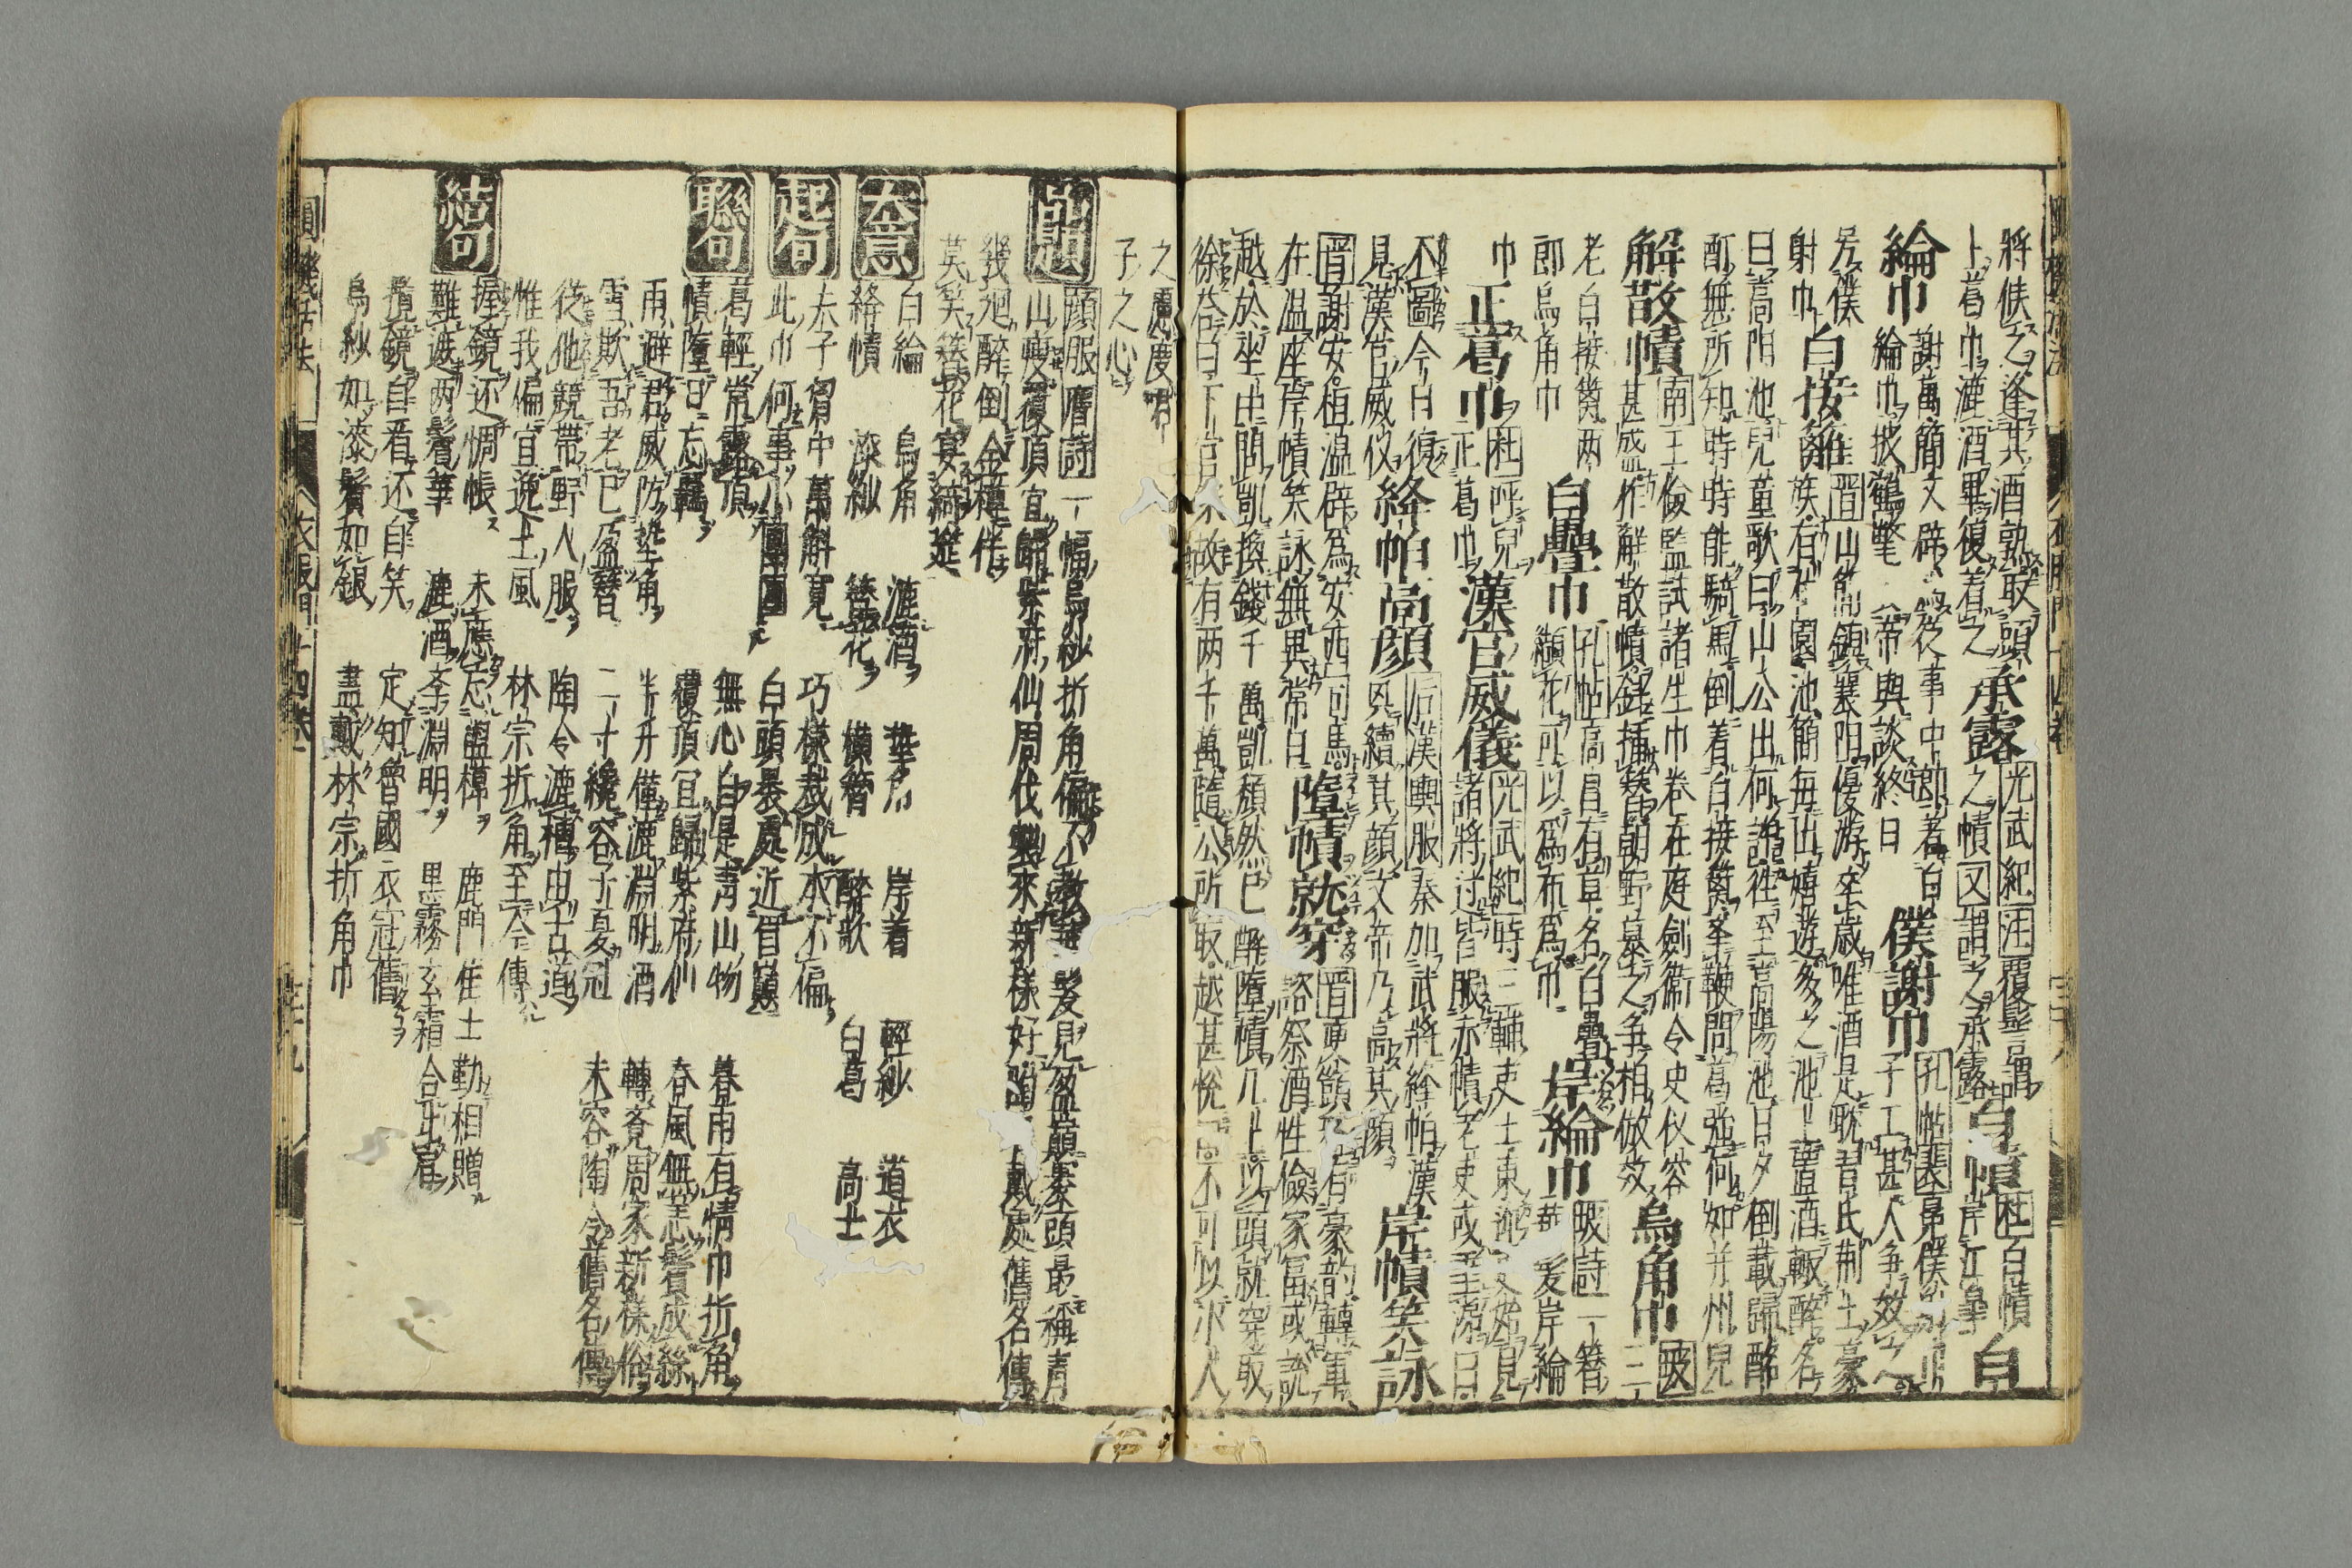 將候之逢其酒熟取頭承露光武紀注覆髻謂白幘杜白幘白
上葛巾漉酒畢復着之之幘又謂之承露岸江皐
綸巾謝萬簡文辟為從事中郎着白僕謝巾孔帖裴冕僕
綸巾披鶴氅帝與談終日子工甚人爭效之
射巾白接䍦晋山簡鎮襄陽優游卒歲唯酒是耽君氏荊土豪
族有佳園池簡每出嬉遊多之池上置酒輙醉名
曰高陽池兒童歌曰山公出何許往至高陽池日夕倒載歸酩
酊無所知時時能騎馬倒着白接䍦举鞭問葛強何如并州兒
解散幘南王儉監試諸生巾卷在庭劍衛令史仪容烏角巾
甚盛作解散幘斜插簪朝野慕之争相倣效三
老白接䍦两白疊巾孔帖高昌有草名白疊岸綸巾詩一簪
郎烏角巾纈花可以爲布爲巾華髪岸綸
巾正葛巾杜呼兒漢官威儀光武紀時三輔吏士東迎見
正葛巾諸將过皆服赤幘老吏或垂涙曰
不圖今日復絳帕高顔后漢輿服秦加武將絳帕漢岸幘笑詠
見漢官威仪興續其顔文帝乃高其顔
晋謝安桓温辟爲安西司馬墮幘就穿晋庾有豪韵轉軍
在温座岸幘笑詠無異常日諮祭酒性儉家富或說
越於坐中問凱換錢千萬凱頹然已醉墮幘几上以頭就穿取
徐荅曰下官家故有两千萬隨公所取越甚悅曰不可以小人
之慮度君
子之心
即題頭服唐詩一幅烏紗折角偏不教華髪見盈巓裹頭最稱青
山瘦覆頂宜歸紫府仙周代製來新樣好陶戴處舊名傳
幾迴醉倒金樽伴
莫笑簪花宴綺筵
大意白綸烏角漉酒華岸着輕紗道衣
絳幘漆紗簪花橫簪醉歌白葛高士
起句夫子胷中萬斛寛巧樣裁成木不偏
此巾何事小團圓白頭裹處近眉巓
聯句葛輕常露頂無心自是青山物暮雨有情巾折角
幘墮日忘簪覆頂宜歸紫府仙春風無恙鬢成絲
雨避君威防墊角半升僅漉淵明酒轉覓周家新樣俗
雪欺吾老已盈簪二寸纔容子夏冠未容陶令舊名傳
從他競帶野人服陶令漉糟由古道
惟我偏宜逸士風林宗折角至今傳
結句握鏡还惆帳未應忘盥櫛鹿門佳士勤相贈
難遮两鬢華漉酒奉淵明黒霧玄霜合正冠
攬鏡自看还自笑定知魯國衣冠舊
烏紗如漆鬢如銀盡戴林宗折角巾